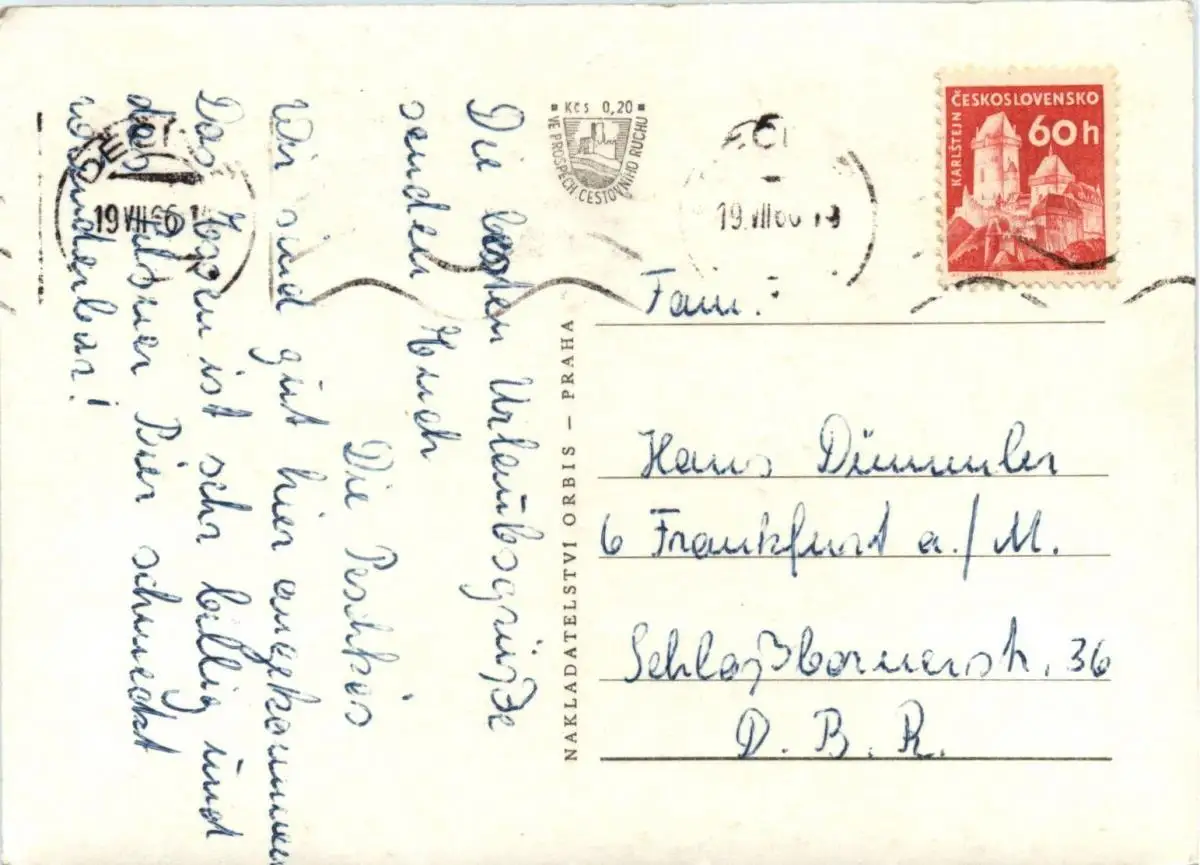 Die besten Urlaubsgrüße
senden Euch
Die Peschkes
Wir sind gut hier angekommen
Das Essen ist sehr billig und
das Pilsner Bier schmeckt
wunderbar!
Kčs 0,20
VE PROSPĚCH CESTOVNÍHO RUCHU
19 VII 66
19. VII 66
ČESKOSLOVENSKO
60h
KARLŠTEJN
NAKLADATELSTVI ORBIS — PRAHA
Fam.
Hans Dümmler
6 Frankfurt a./M.
Schloßbornerstr. 36
D. B. R.